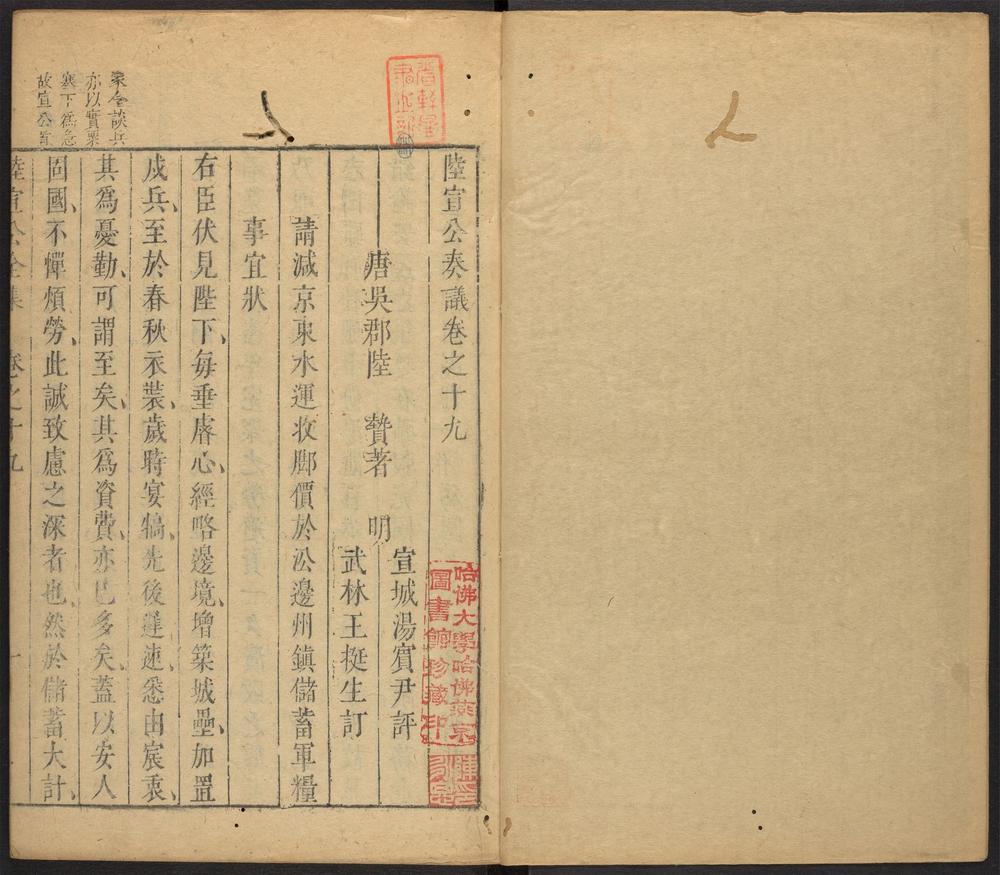 陸宣公奏議卷之十九
唐吳郡陸 贄著 明
宣城湯賓尹評
武林王挺生訂
請減京東水運收脚價於㳂邊州鎮儲蓄軍糧
事宜狀
右臣伏見陛下、每垂睿心、經略邊境、增築城壘、加置
戍兵、至於春秋衣裝、歲時宴犒、先後遲速、悉由宸衷、
其爲憂勤、可謂至矣、其爲資費、亦已多矣、蓋以安人
固國、不憚煩勞、此誠致慮之深者也、然於儲蓄大計、
陸宣公全集 卷之十九 一
談兵
亦以實粟
塞下爲急
故宣公首
哈佛大學哈佛燕京
圖書館珍藏印